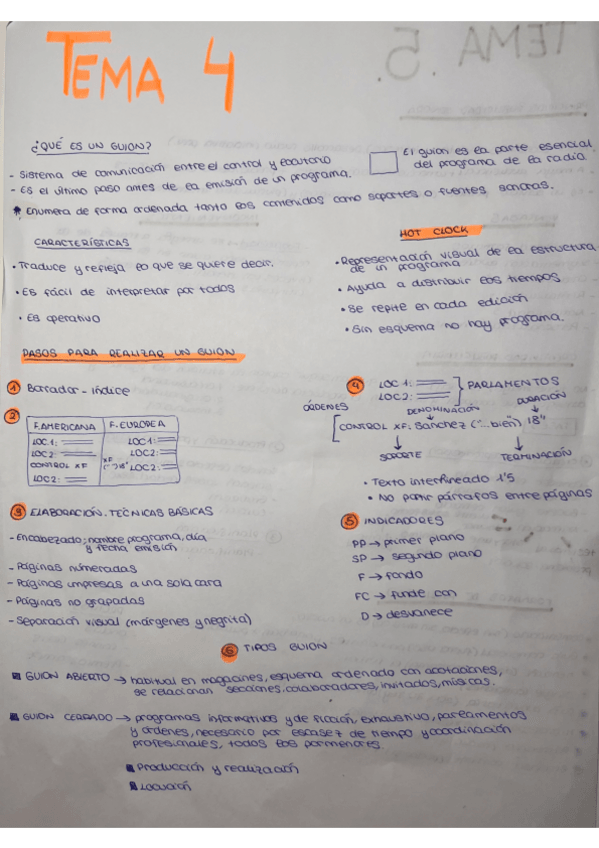 TEMA 4
TEMA. 5.
¿QUÉ ES UN GUION?
- Sistema de comunicación entre el control y locutorio
- Es el último paso antes de la emisión de un programa.
El guion es la parte esencial
del programa de la radio.
* Enumera de forma ordenada tanto los contenidos como soportes o fuentes sonoras.
CARACTERÍSTICAS
• Traduce y refleja lo que se quiere decir.
• Es fácil de interpretar por todos
• Es operativo
HOT CLOCK
• Representación visual de la estructura
de un programa
• Ayuda a distribuir los tiempos
• Se repite en cada edición
• Sin esquema no hay programa.
PASOS PARA REALIZAR UN GUION
1 Borrador - índice
2
F. AMERICANA
LOC 1:
LOC 2:
CONTROL XF
LOC 2:
F. EUROPEA
LOC 1:
LOC 2:
XF
("")18" LOC 2:
3 ELABORACIÓN. TÉCNICAS BÁSICAS
- Encabezado; nombre programa, día
y fecha emisión
- Páginas numeradas
- Páginas impresas a una sola cara
- Páginas no grapadas
- Separación visual (márgenes y negrita)
4 LOC 1:
LOC 2:
PARLAMENTOS
ÓRDENES
DENOMINACIÓN
DURACIÓN
CONTROL XF: Sánchez ("...bien") 18"
SOPORTE
TERMINACIÓN
• Texto interlineado 1'5
• No partir párrafos entre páginas
5 INDICADORES
PP → primer plano
SP → segundo plano
F → fondo
FC → funde con
D → desvanece
6 TIPOS GUION
GUION ABIERTO → habitual en magacines, esquema ordenado con acotaciones,
se relacionan secciones, colaboradores, invitados, músicas.
GUION CERRADO → programas informativos y de ficción, exhaustivo, parlamentos
y órdenes, necesario por escasez de tiempo y coordinación
profesionales, todos los pormenores.
Producción y realización
Locución